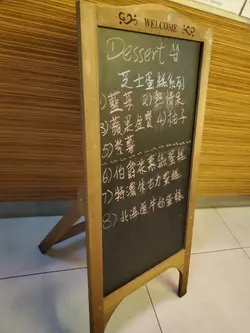 WELCOME
Dessert
芝士蛋糕系列
1) 藍莓 2) 熱情果
3) 蘋果金寶 4) 柚子
5) 紫薯
6) 伯爵茶慕絲蛋糕
7) 特濃朱古力蛋糕
8) 北海道牛奶蛋糕